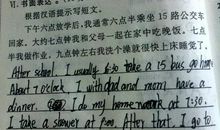 VI. 书面表达。
根据汉语提示写短文。
下午六点放学后,我通常六点半乘坐 15 路公交车
回家。大约七点钟我和父母一起在家中吃晚饭。七点
半我做作业。九点钟左右我洗个澡就很快上床睡觉了。
After school. I usually 6:30 take a 15 bus go home
About 7 o'clock, I with dad and mom have a
dinner. I do my home work at 7:30.
I take a shower at 9:00. After that I go to